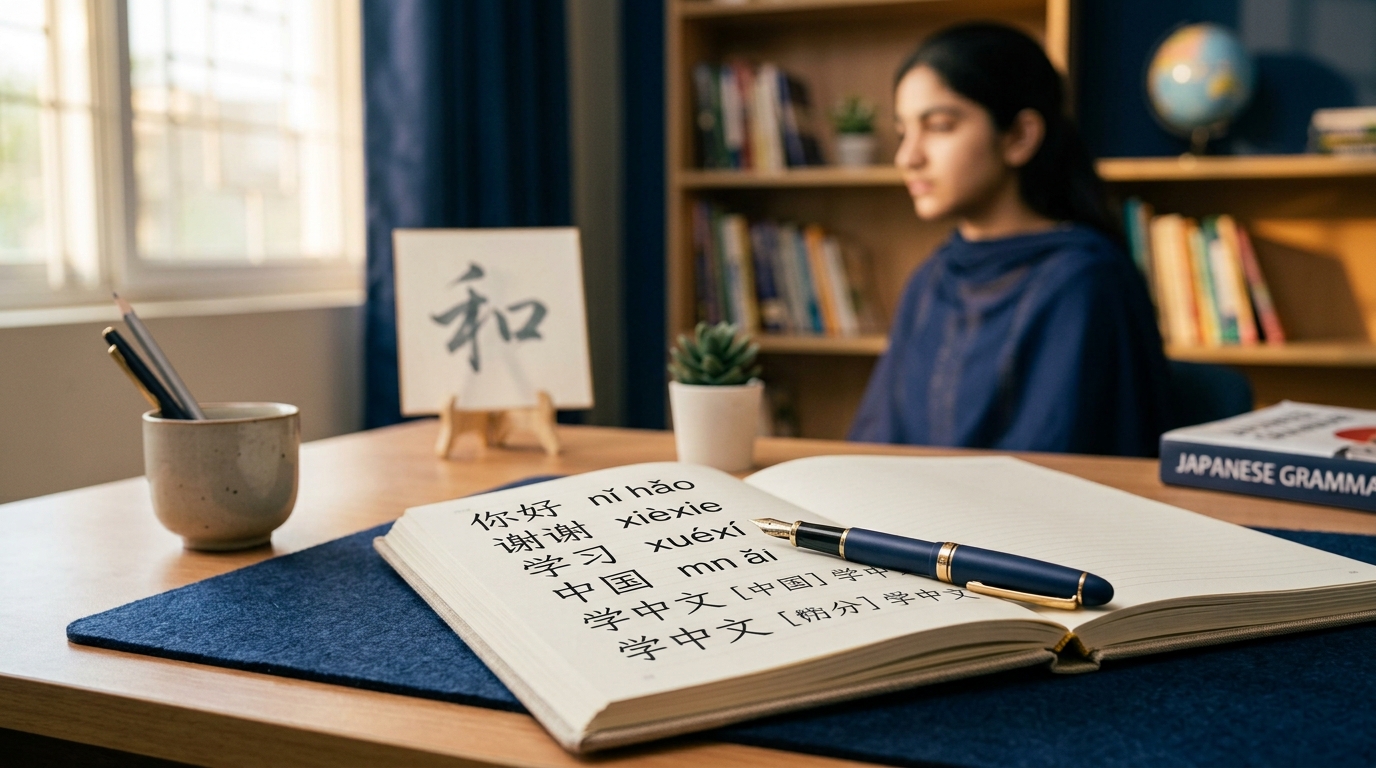 和
你好 nǐ hǎo
谢谢 xièxie
学习 xuéxí
中国 mn ǎi
学中文 [中国] 学中
学中文 [分] 学中文
JAPANESE GRAMMA